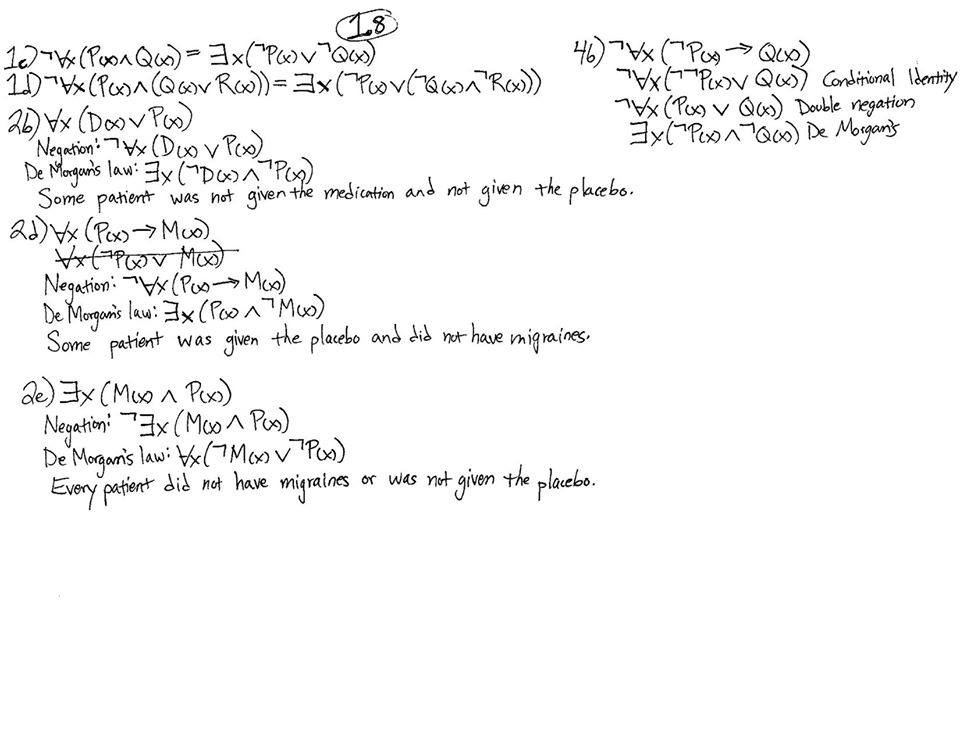 1.8
1c) ¬∀x (P(x) ∧ Q(x)) = ∃x (¬P(x) ∨ ¬Q(x))
1d) ¬∀x (P(x) ∧ (Q(x) ∨ R(x))) = ∃x (¬P(x) ∨ (¬Q(x) ∧ ¬R(x)))
2b) ∀x (D(x) ∨ P(x))
Negation: ¬∀x (D(x) ∨ P(x))
De Morgan's law: ∃x (¬D(x) ∧ ¬P(x))
Some patient was not given the medication and not given the placebo.
2d) ∀x (P(x) → M(x))
∀x (¬P(x) ∨ M(x))
Negation: ¬∀x (P(x) → M(x))
De Morgan's law: ∃x (P(x) ∧ ¬M(x))
Some patient was given the placebo and did not have migraines.
2e) ∃x (M(x) ∧ P(x))
Negation: ¬∃x (M(x) ∧ P(x))
De Morgan's law: ∀x (¬M(x) ∨ ¬P(x))
Every patient did not have migraines or was not given the placebo.
4b) ¬∀x (¬P(x) → Q(x))
¬∀x (¬¬P(x) ∨ Q(x)) Conditional Identity
¬∀x (P(x) ∨ Q(x)) Double negation
∃x (¬P(x) ∧ ¬Q(x)) De Morgan's